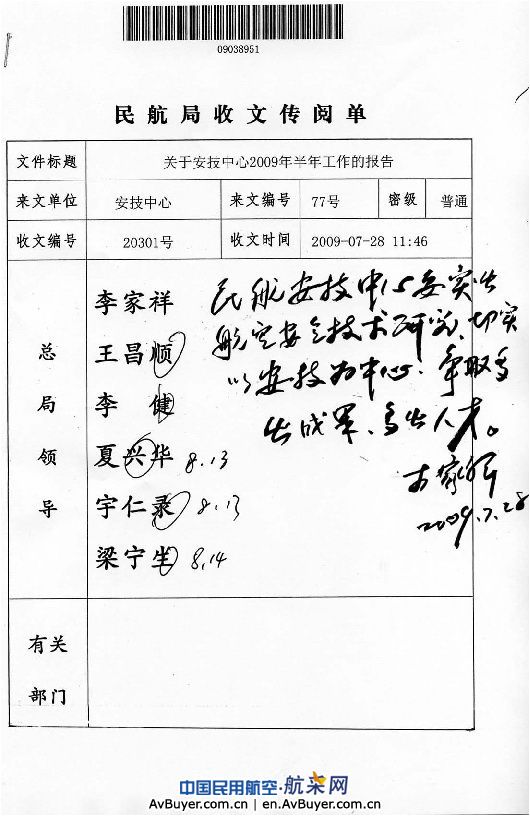 09038951
民航局收文传阅单
文件标题 关于安技中心2009年半年工作的报告
来文单位 安技中心 来文编号 77号 密级 普通
收文编号 20301号 收文时间 2009-07-28 11:46
总局领导
李家祥
王昌顺
李健
夏兴华 8.13
宇仁录 8.13
梁宁生 8.14
民航安技中心要突出
航空安全技术研究、切实
以安技为中心、争取多
出成果、多出人才。
李家祥
2009.7.28
有关
部门
中国民用航空·航采网
AvBuyer.com.cn | en.AvBuyer.com.cn